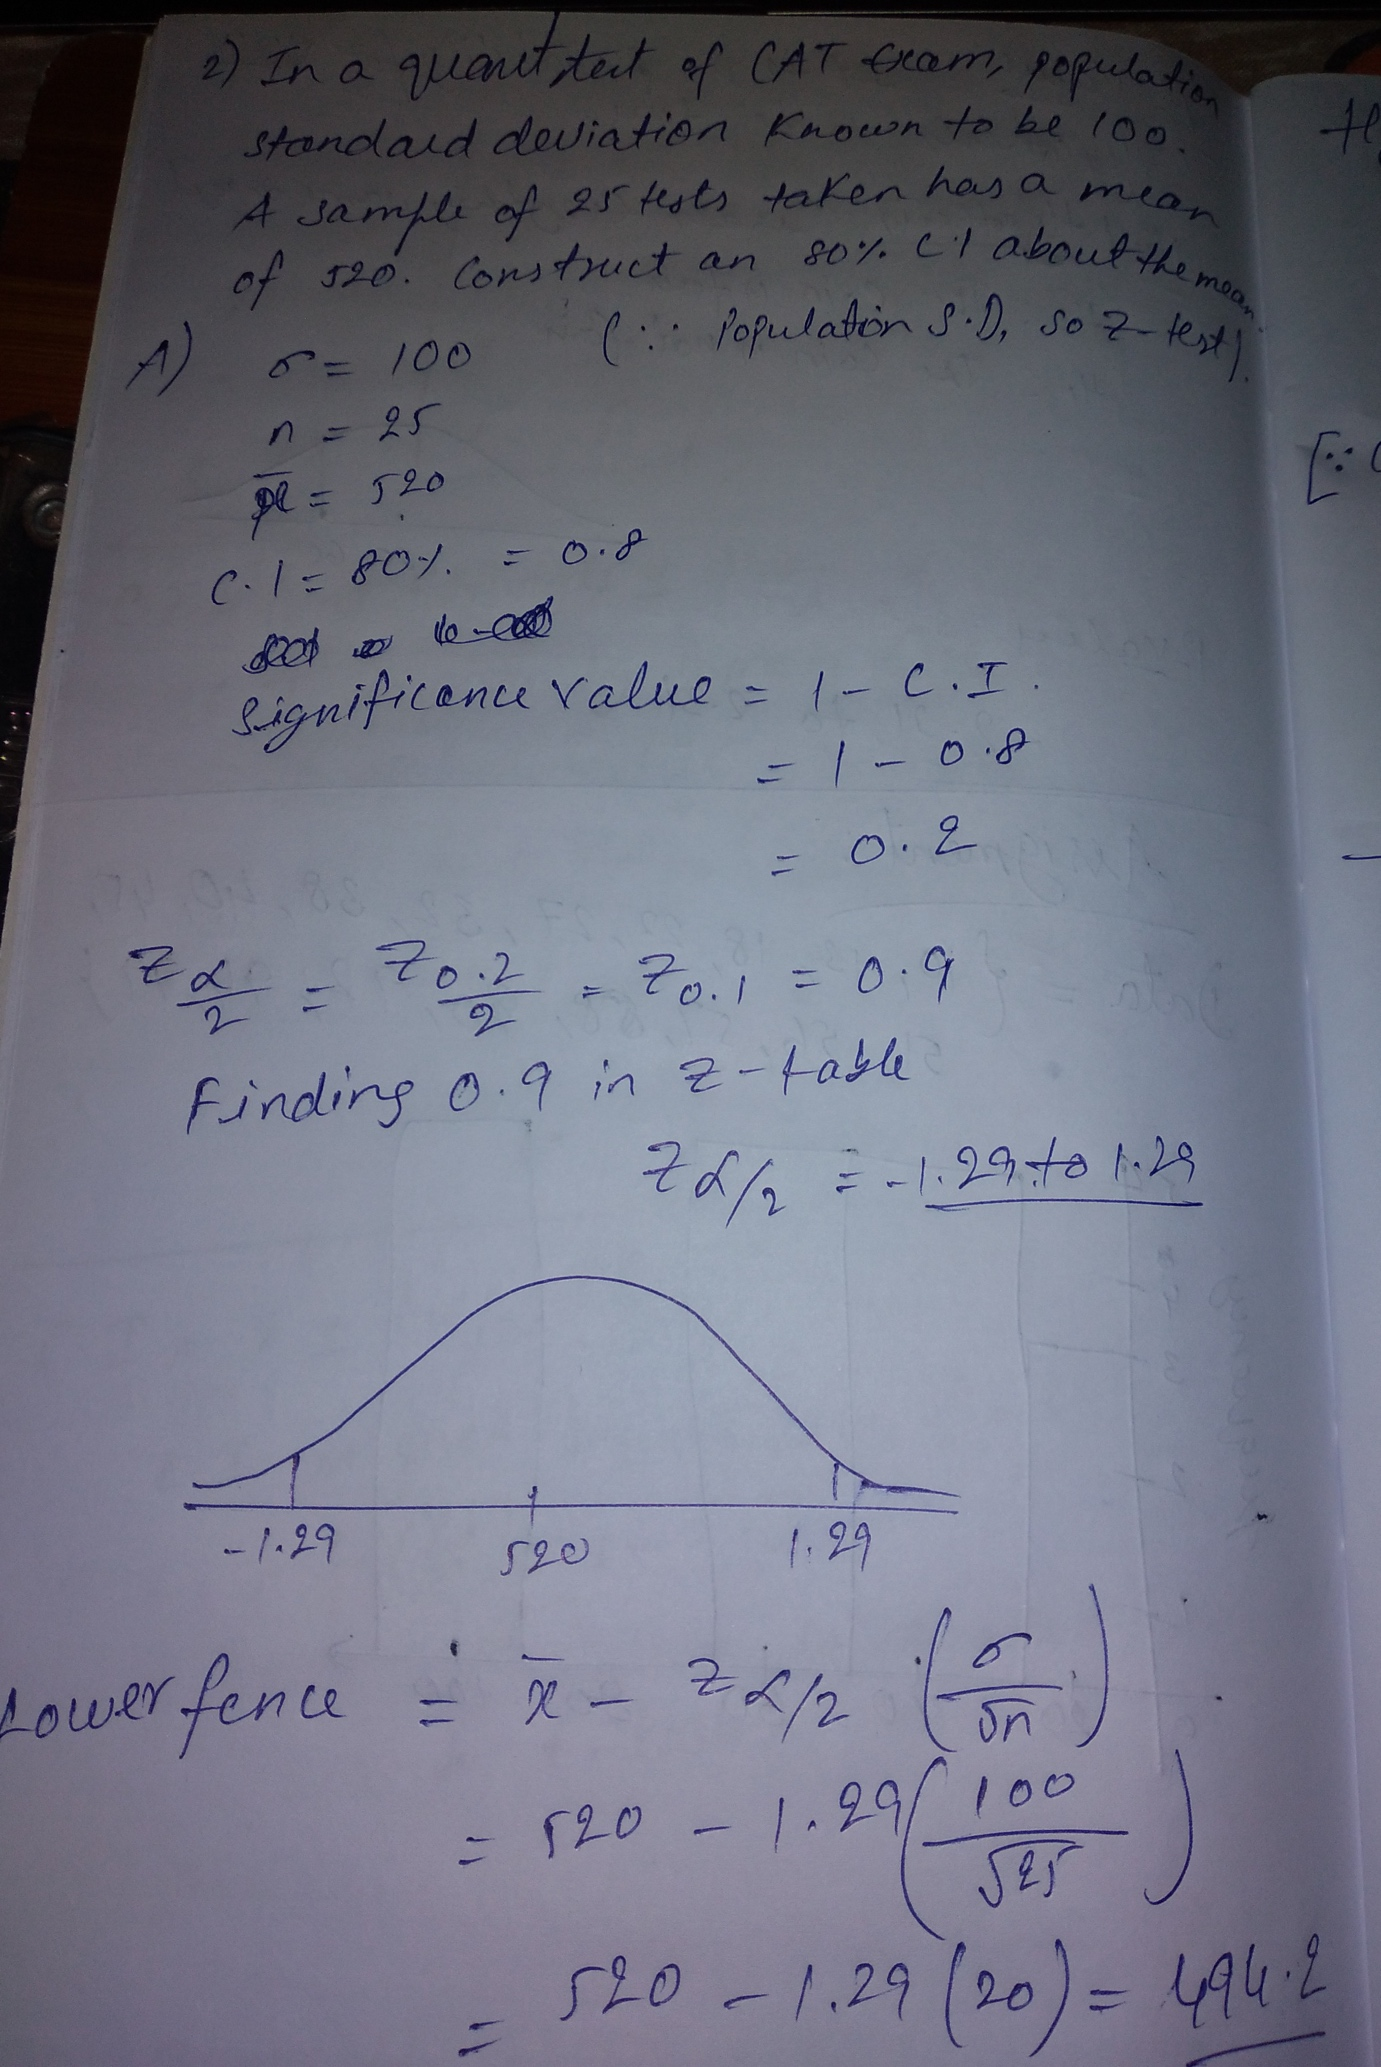 2) In a quant test of CAT Exam, population
standard deviation known to be 100.
A sample of 25 tests taken has a mean
of 520. Construct an 80% C.I about the mean.
(∵ Population S.D, so Z-test).
A) σ = 100
n = 25
x̄ = 520
C.I = 80% = 0.8
Significance value = 1 - C.I.
= 1 - 0.8
= 0.2
Z α/2 = Z 0.2/2 = Z 0.1 = 0.9
Finding 0.9 in Z-table
Z α/2 = -1.29 to 1.29
-1.29 520 1.29
Lower fence = x̄ - Z α/2 (σ/√n)
= 520 - 1.29 (100/√25)
= 520 - 1.29 (20) = 494.2